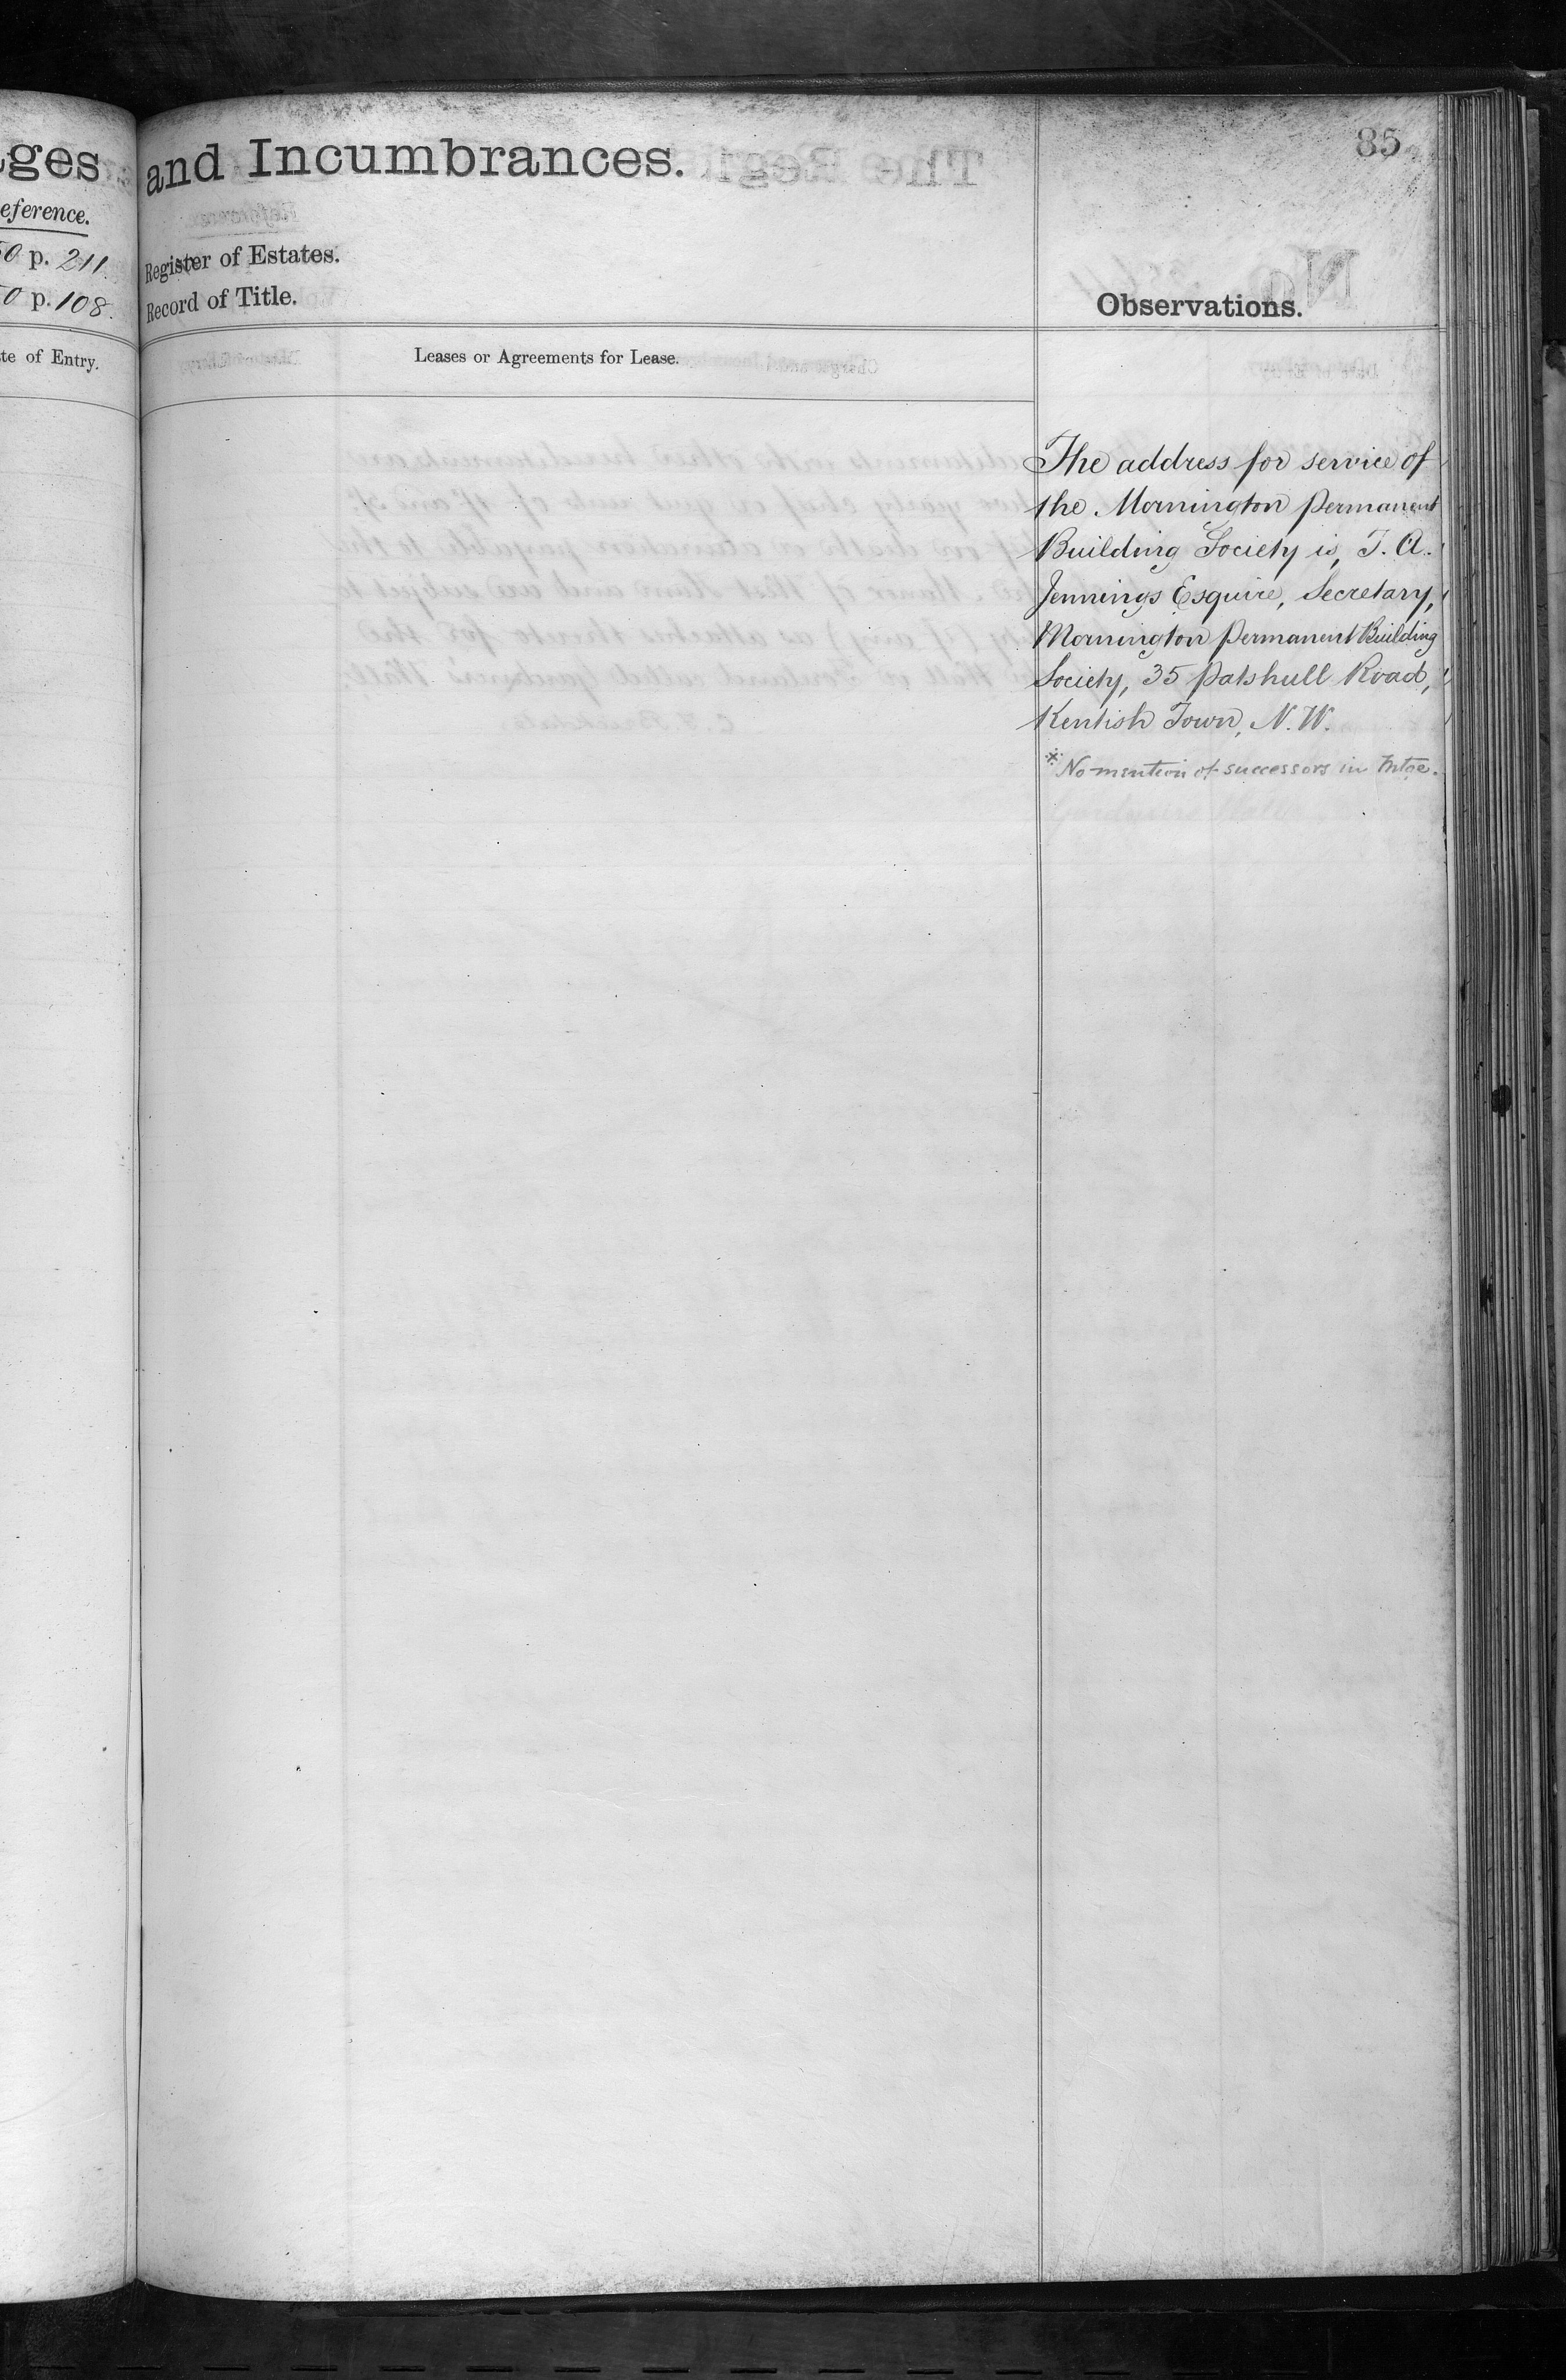 85
ges and Incumbrances.
eference.
0 p. 211.
0 p. 108.
Register of Estates.
Record of Title.
Observations.
te of Entry.
Leases or Agreements for Lease.
The address for service of
the Mornington Permanent
Building Society is, T. A.
Jennings Esquire, Secretary,
Mornington Permanent Building
Society, 35 Patshull Road,
Kentish Town, N. W.
* No mention of successors in Mtge.